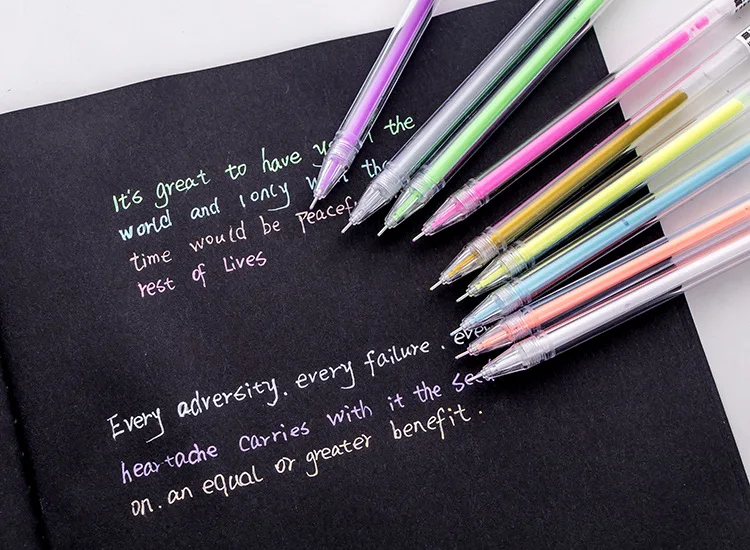 It's great to have the
world and I only
time would be
rest of Lives
Every adversity. every failure.
heartache carries with it the
on. an equal or greater benefit.